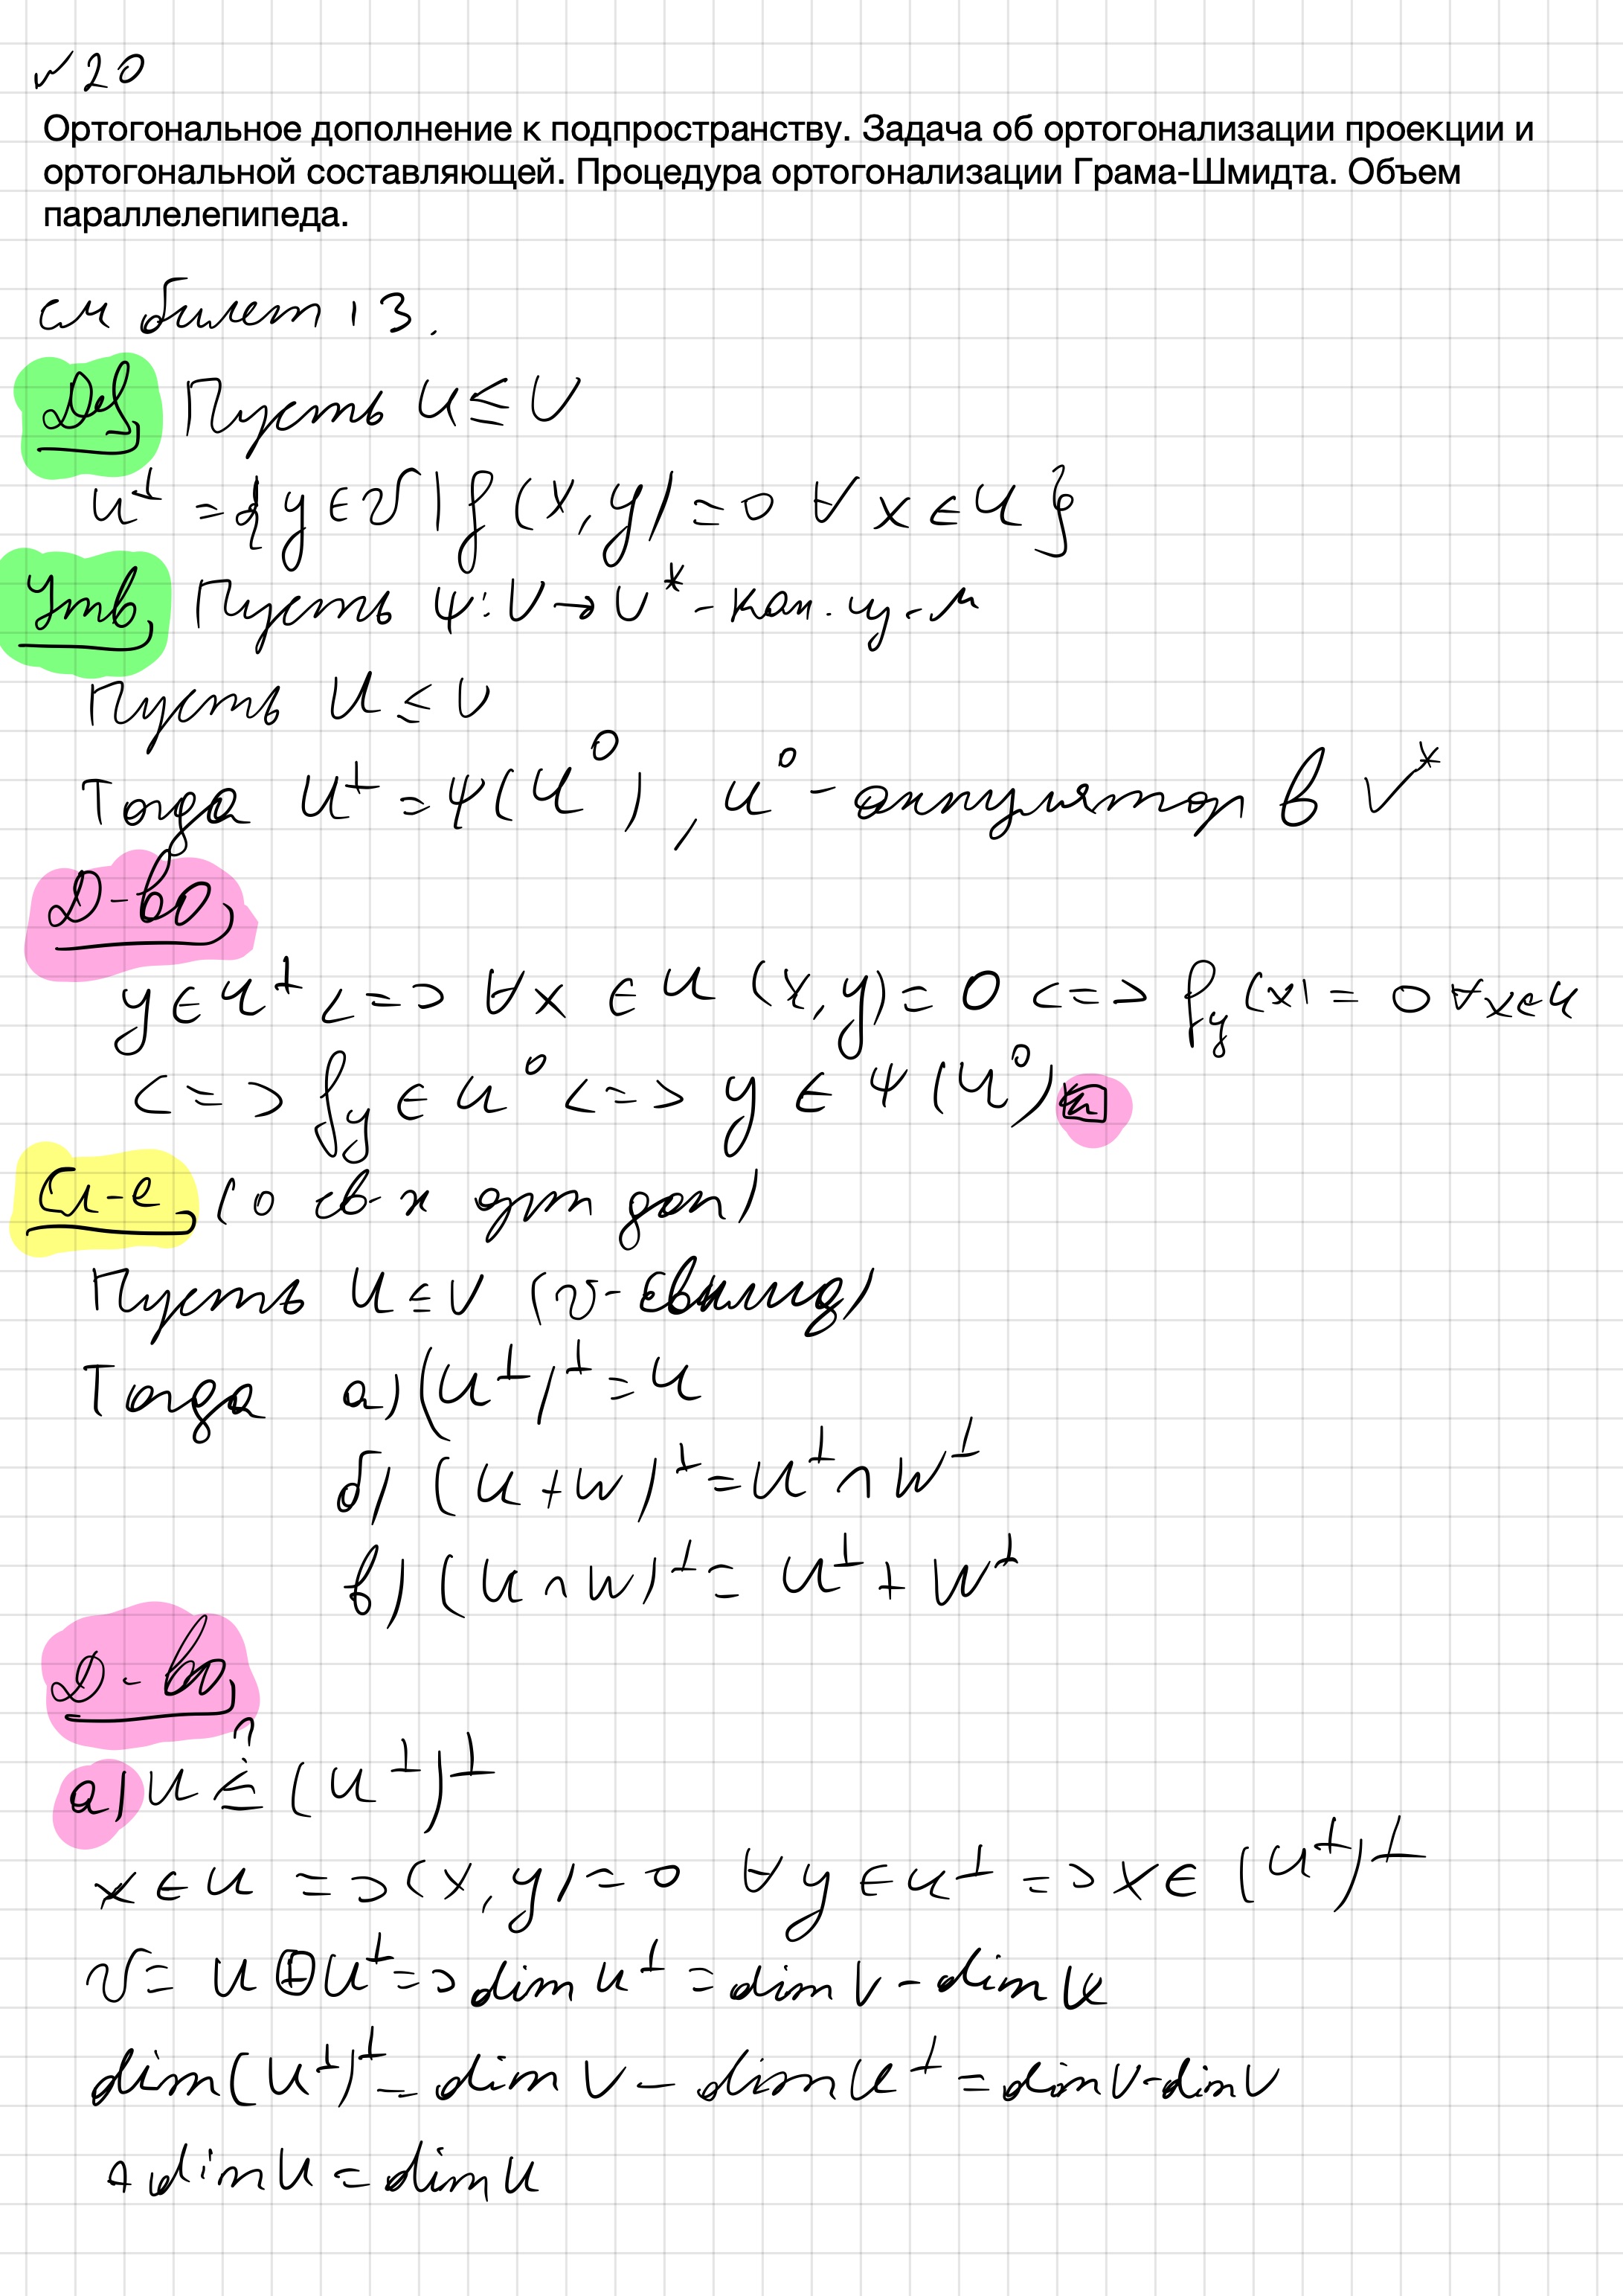 №20
Ортогональное дополнение к подпространству. Задача об ортогонализации проекции и
ортогональной составляющей. Процедура ортогонализации Грама-Шмидта. Объем
параллелепипеда.
см билет 13.
Def, Пусть U ≤ V
U^⊥ = {y ∈ V | f(x, y) = 0 ∀ x ∈ U}
Утв, Пусть ψ: V → V* - кан. из-м
Пусть U ≤ V
Тогда U^⊥ = ψ(U^0), U^0 - аннулятор в V*
D-во,
y ∈ U^⊥ <=> ∀x ∈ U (x, y) = 0 <=> f_y(x) = 0 ∀x∈U
<=> f_y ∈ U^0 <=> y ∈ ψ(U^0)
Сл-е, (о св-х орт доп)
Пусть U ≤ V (V - евклид)
Тогда а) (U^⊥)^⊥ = U
б) (U + W)^⊥ = U^⊥ ∩ W^⊥
в) (U ∩ W)^⊥ = U^⊥ + W^⊥
D-во,
а) U ≤? (U^⊥)^⊥
x ∈ U => (x, y) = 0 ∀ y ∈ U^⊥ => x ∈ (U^⊥)^⊥
V = U ⊕ U^⊥ => dim U^⊥ = dim V - dim U
dim (U^⊥)^⊥ = dim V - dim U^⊥ = dim V - dim V
+ dim U = dim U